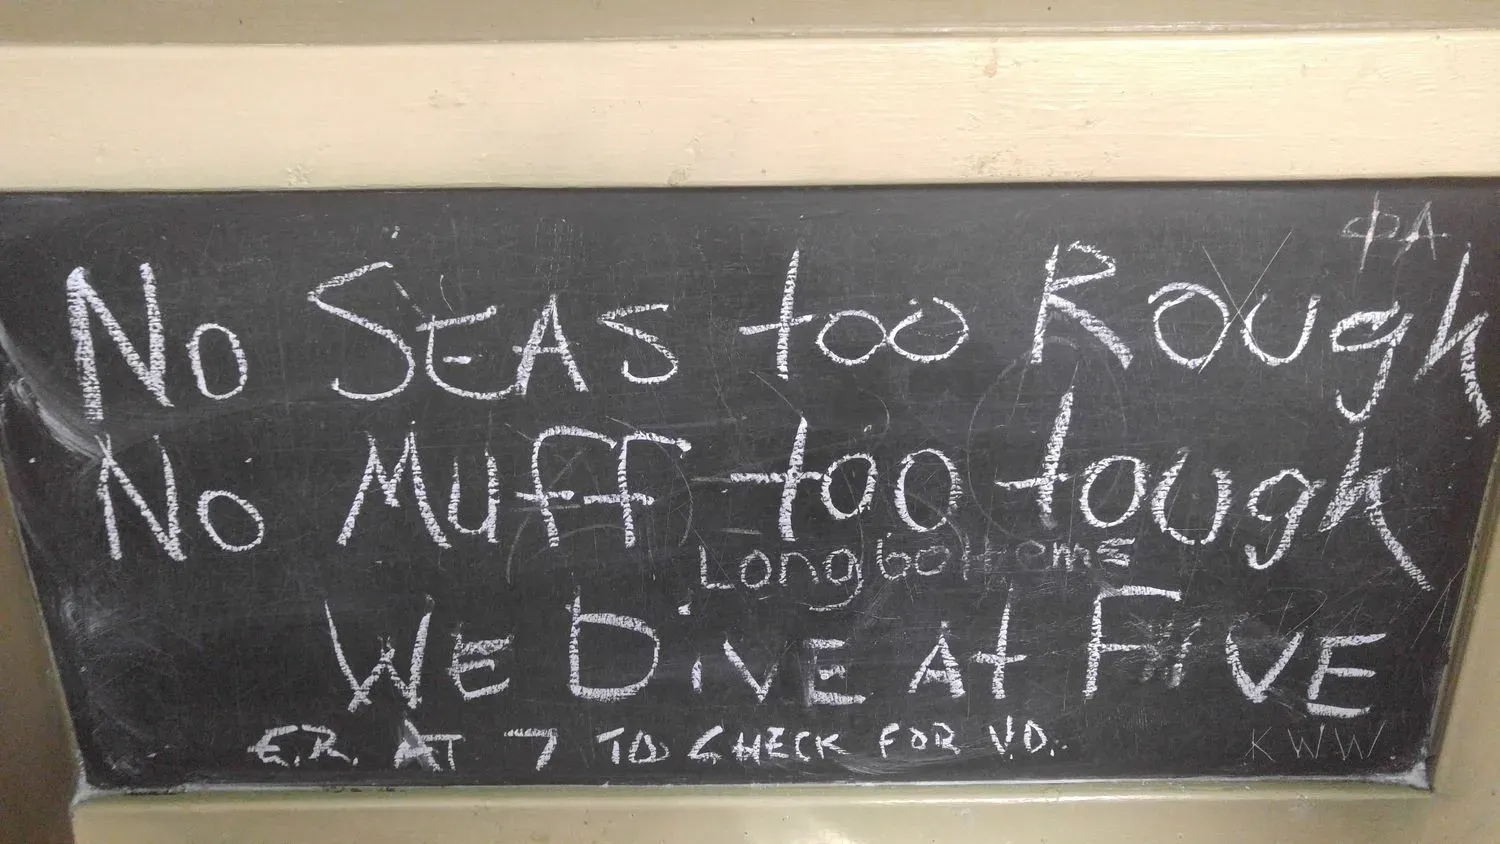 ΦA
No SEAS too Rough
No Muff too tough
Longbottoms
WE DiVE At FiVE
E.R. AT 7 TO CHECK FOR V.D.
KWW